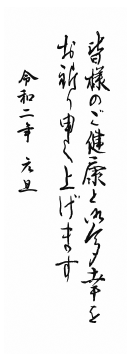 皆様のご健康と御多幸を
お祈り申し上げます
令和二年 元旦